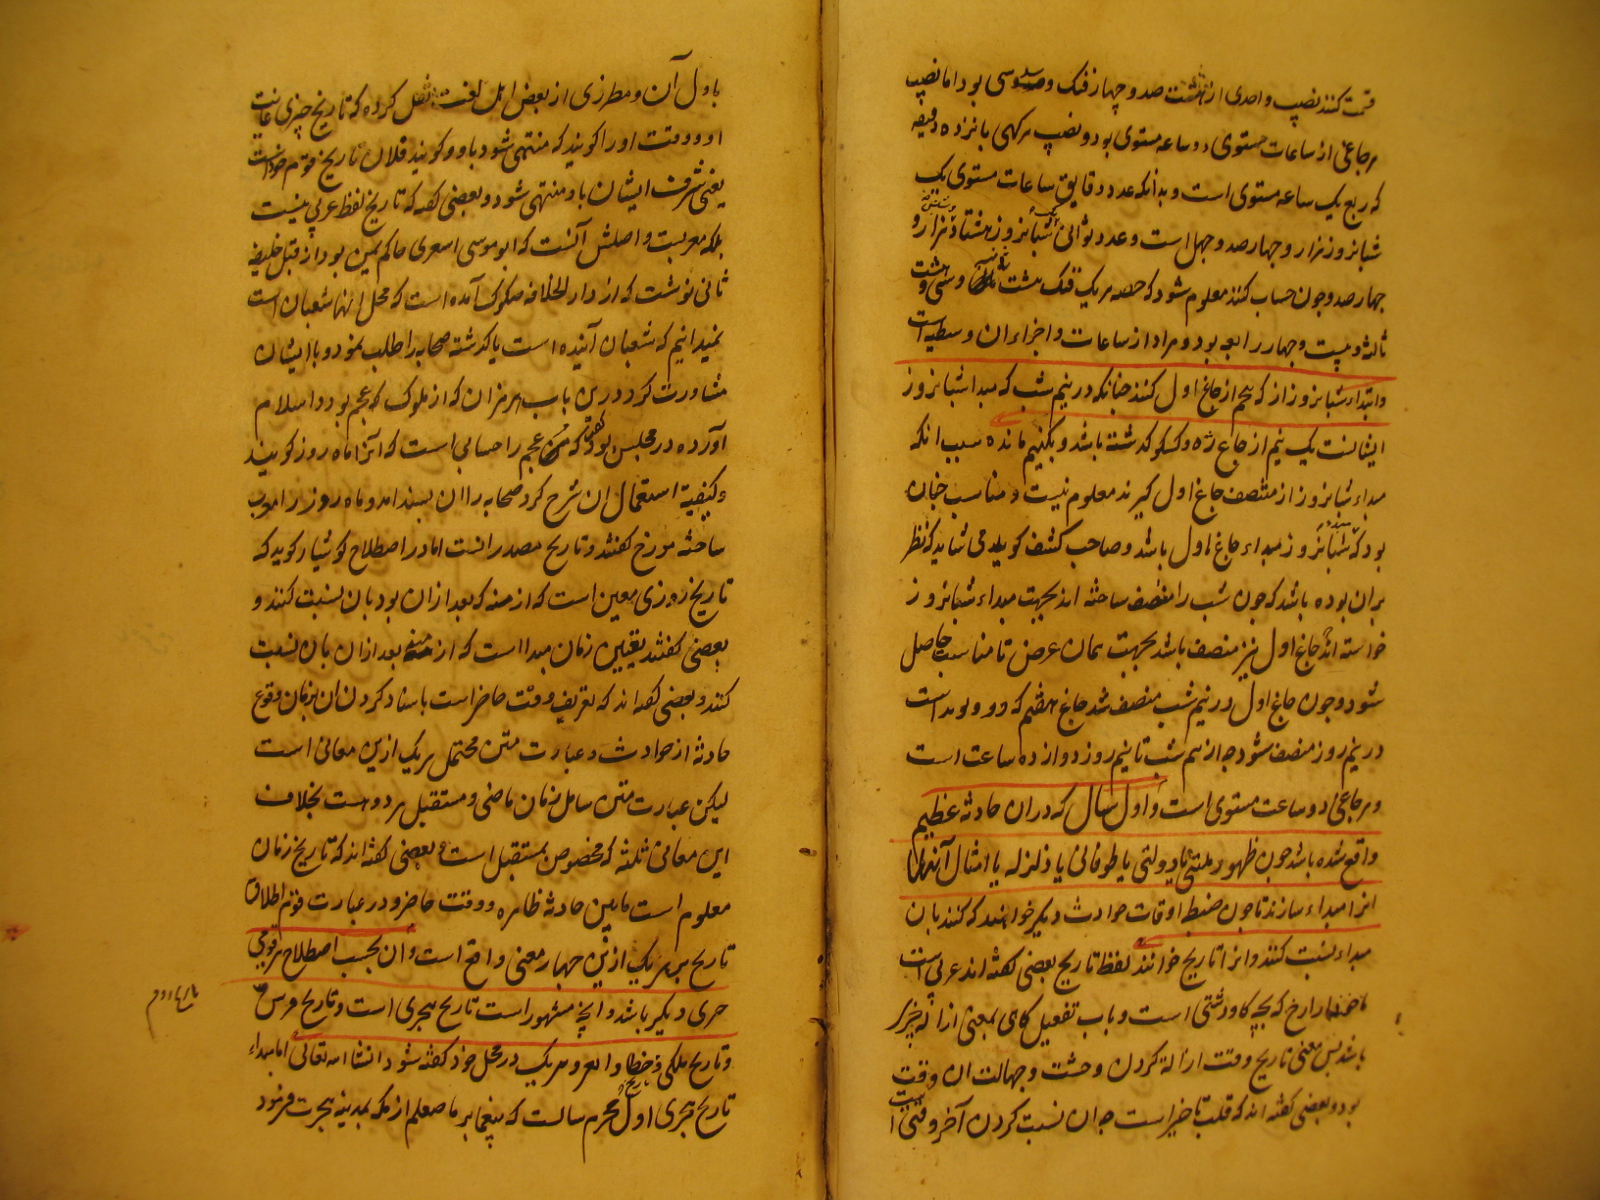 قسمت کنند نصیب واحدی از هشت صد و چهار فنک و صد و سی بود اما نصیب
هر چاغی از ساعات مستوی دو ساعه مستوی بود و نصیب هر کهی پانزده دقیقه
که ربع یک ساعه مستوی است و بدانکه عدد دقایق ساعات مستوی یک
شبانروز هزار و چهار صد و چهل است و عدد ثوانی یک شبانروز هشتاد هزار و
چهار صد و چون حساب کنند معلوم شود که حصه هر یک فنک هشت ثانیه و سی و هشت
ثالثه و بیست و چهار رابعه بود و مراد از ساعات و اجزاء ان وسطیه است
و ابتداء شبانروز از که پنجم از چاغ اول کنند چنانکه در نیم شب که مبدا شبانروز
ایشانست یک نیم از چاغ زه و کسکو کدشته باشد و یکنیم مانده سبب انکه
مبداء شبانروز از منتصف چاغ اول کیرند معلوم نیست و مناسب چنان
بود که مبداء شبانروز مبداء چاغ اول باشد و صاحب کشف کوید می شاید که نظر
بران بوده باشد که چون شب را منصف ساخته اند بجهت مبداء شبانروز
خواسته اند چاغ اول نیز منصف باشد بجهت همان عرض تا مناسبت حاصل
شود و چون چاغ اول در نیم شب منصف شد چاغ هفتم که دو ولوند است
در نیم روز منصف شود چه از نیم شب تا نیم روز دوازده ساعت است
و هر چاغی دو ساعت مستوی است و اول سال که دران حادثه عظیم
واقع شده باشد چون ظهور ملتی یا دولتی یا طوفانی یا زلزله یا امثال آنها
انرا مبداء سازند تا چون ضبط اوقات حوادث دیکر خواهند که کنند بان
مبداء نسبت کنند و انرا تاریخ خوانند لفظ تاریخ بعضی کفته اند عربی است
ماخوذ از ارخ که بچه کاو دشتی است و باب تفعیل کاهی بمعنی ازاله چیزی
باشد پس معنی تاریخ وقت ازاله کردن وحشت و جهالت ان وقت
بود و بعضی کفته اند که قلب تاخیر است چه ان نسبت کردن آخر وقتی است
باول آن و مطرزی از بعض اهل لغت نقل کرده که تاریخ چیزی غایت
او و وقت او را کویند که منتهی شود باو و کویند فلان تاریخ قوم خود است
یعنی شرف ایشان باو منتهی شود و بعضی کفته که تاریخ لفظ عربی نیست
بلکه معربست و اصلش آنست که ابوموسی اسعری حاکم یمن بود از قبل خلیفه
ثانی نوشت که از دار الخلافه صکوک آمده است که محل انها شعبان است
نمیدانیم که شعبان آینده است یا کدشته صحابه را طلب نمود و با ایشان
مشاورت کرد درین باب هرمزان که از ملوک عجم بود و اسلام
آورده در مجلس بود کفت که عجم را حسابی است که آنرا ماه روز کویند
و کیفیة استعمال ان شرح کرد صحابه را ان پسند امد و ماه روز را معرب
ساخته مورخ کفتند و تاریخ مصدر انست اما در اصطلاح کوشیار کوید که
تاریخ روزی معین است که ازمنه که بعد ازان بود بان نسبت کنند و
بعضی کفتند تعیین زمان مبدا است که ازمنه بعد ازان بان نسبت
کنند و بعضی کفته اند که تعریف وقت حاضر است باسناد کردن ان بزمان وقوع
حادثه از حوادث و عبارت متن محتمل هر یک ازین معانی است
لیکن عبارت متن شامل زمان ماضی و مستقبل هر دو است بخلاف
این معانی ثلثه که مخصوص بمستقبل است و بعضی کفته اند که تاریخ زمان
معلوم است مابین حادثه ظاهره و وقت حاضر و در عبارت قوم اطلاق
تاریخ بر هر یک ازین چهار معنی واقع است و ان بحسب اصطلاح هر قومی
چیزی دیکر باشد و انچه مشهور است تاریخ هجری است و تاریخ فرس
و تاریخ ملکی و هر یک در محل خود کفته شود انشاء الله تعالی اما مبداء
تاریخ هجری اول محرم سالست که پیغامبر ما صلعم از مکه بمدینه هجرت فرمود